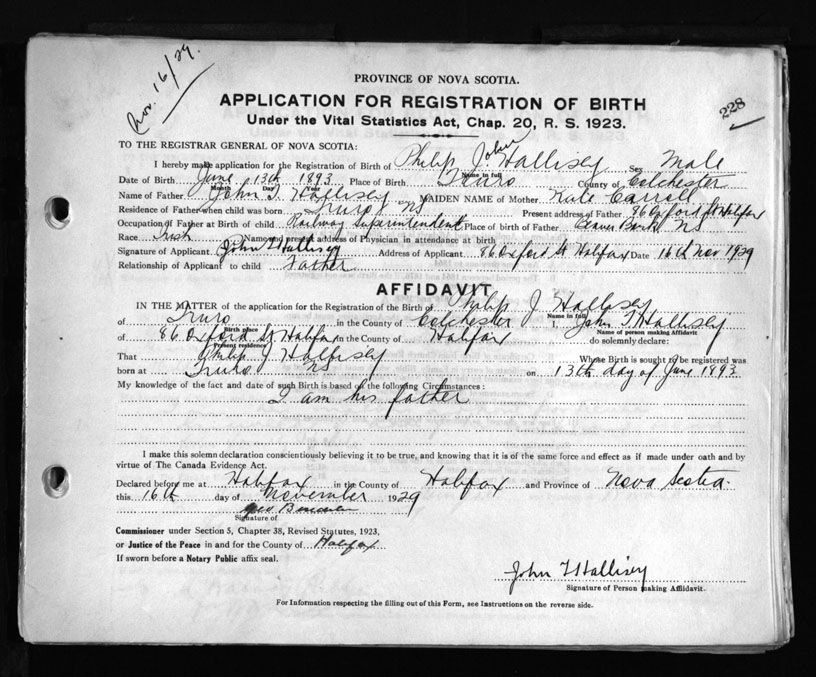 Nov. 16/29.
PROVINCE OF NOVA SCOTIA.
228
APPLICATION FOR REGISTRATION OF BIRTH
Under the Vital Statistics Act, Chap. 20, R. S. 1923.
TO THE REGISTRAR GENERAL OF NOVA SCOTIA:
I hereby make application for the Registration of Birth of Philip John Hallisey Sex Male
Name in full
Date of Birth June 13th 1893 Place of Birth Truro County of Colchester
Month Day Year
Name of Father John T. Hallisey MAIDEN NAME of Mother Kate Carroll
Residence of Father when child was born Truro NS Present address of Father 86 Oxford St Halifax
Occupation of Father at Birth of child Railway Superintendent Place of birth of Father Beaver Bank NS
Race Irish Name and present address of Physician in attendance at birth
Signature of Applicant John T Hallisey Address of Applicant 86 Oxford St Halifax Date 16th Nov 1929
Relationship of Applicant to child Father
AFFIDAVIT
IN THE MATTER of the application for the Registration of the Birth of Philip J Hallisey
Name in full
of Truro in the County of Colchester I, John T Hallisey
Birth place Name of person making Affidavit
of 86 Oxford St. Halifax in the County of Halifax do solemnly declare:
Present residence
That Philip J Hallisey Whose Birth is sought to be registered was
born at Truro NS on 13th day of June 1893
My knowledge of the fact and date of such Birth is based on the following Circumstances:
I am his father
I make this solemn declaration conscientiously believing it to be true, and knowing that it is of the same force and effect as if made under oath and by
virtue of The Canada Evidence Act.
Declared before me at Halifax in the County of Halifax and Province of Nova Scotia.
this 16th day of November 1929
Signature of
Commissioner under Section 5, Chapter 38, Revised Statutes, 1923,
or Justice of the Peace in and for the County of Halifax
If sworn before a Notary Public affix seal.
John T Hallisey
Signature of Person making Affidavit.
For Information respecting the filling out of this Form, see Instructions on the reverse side.